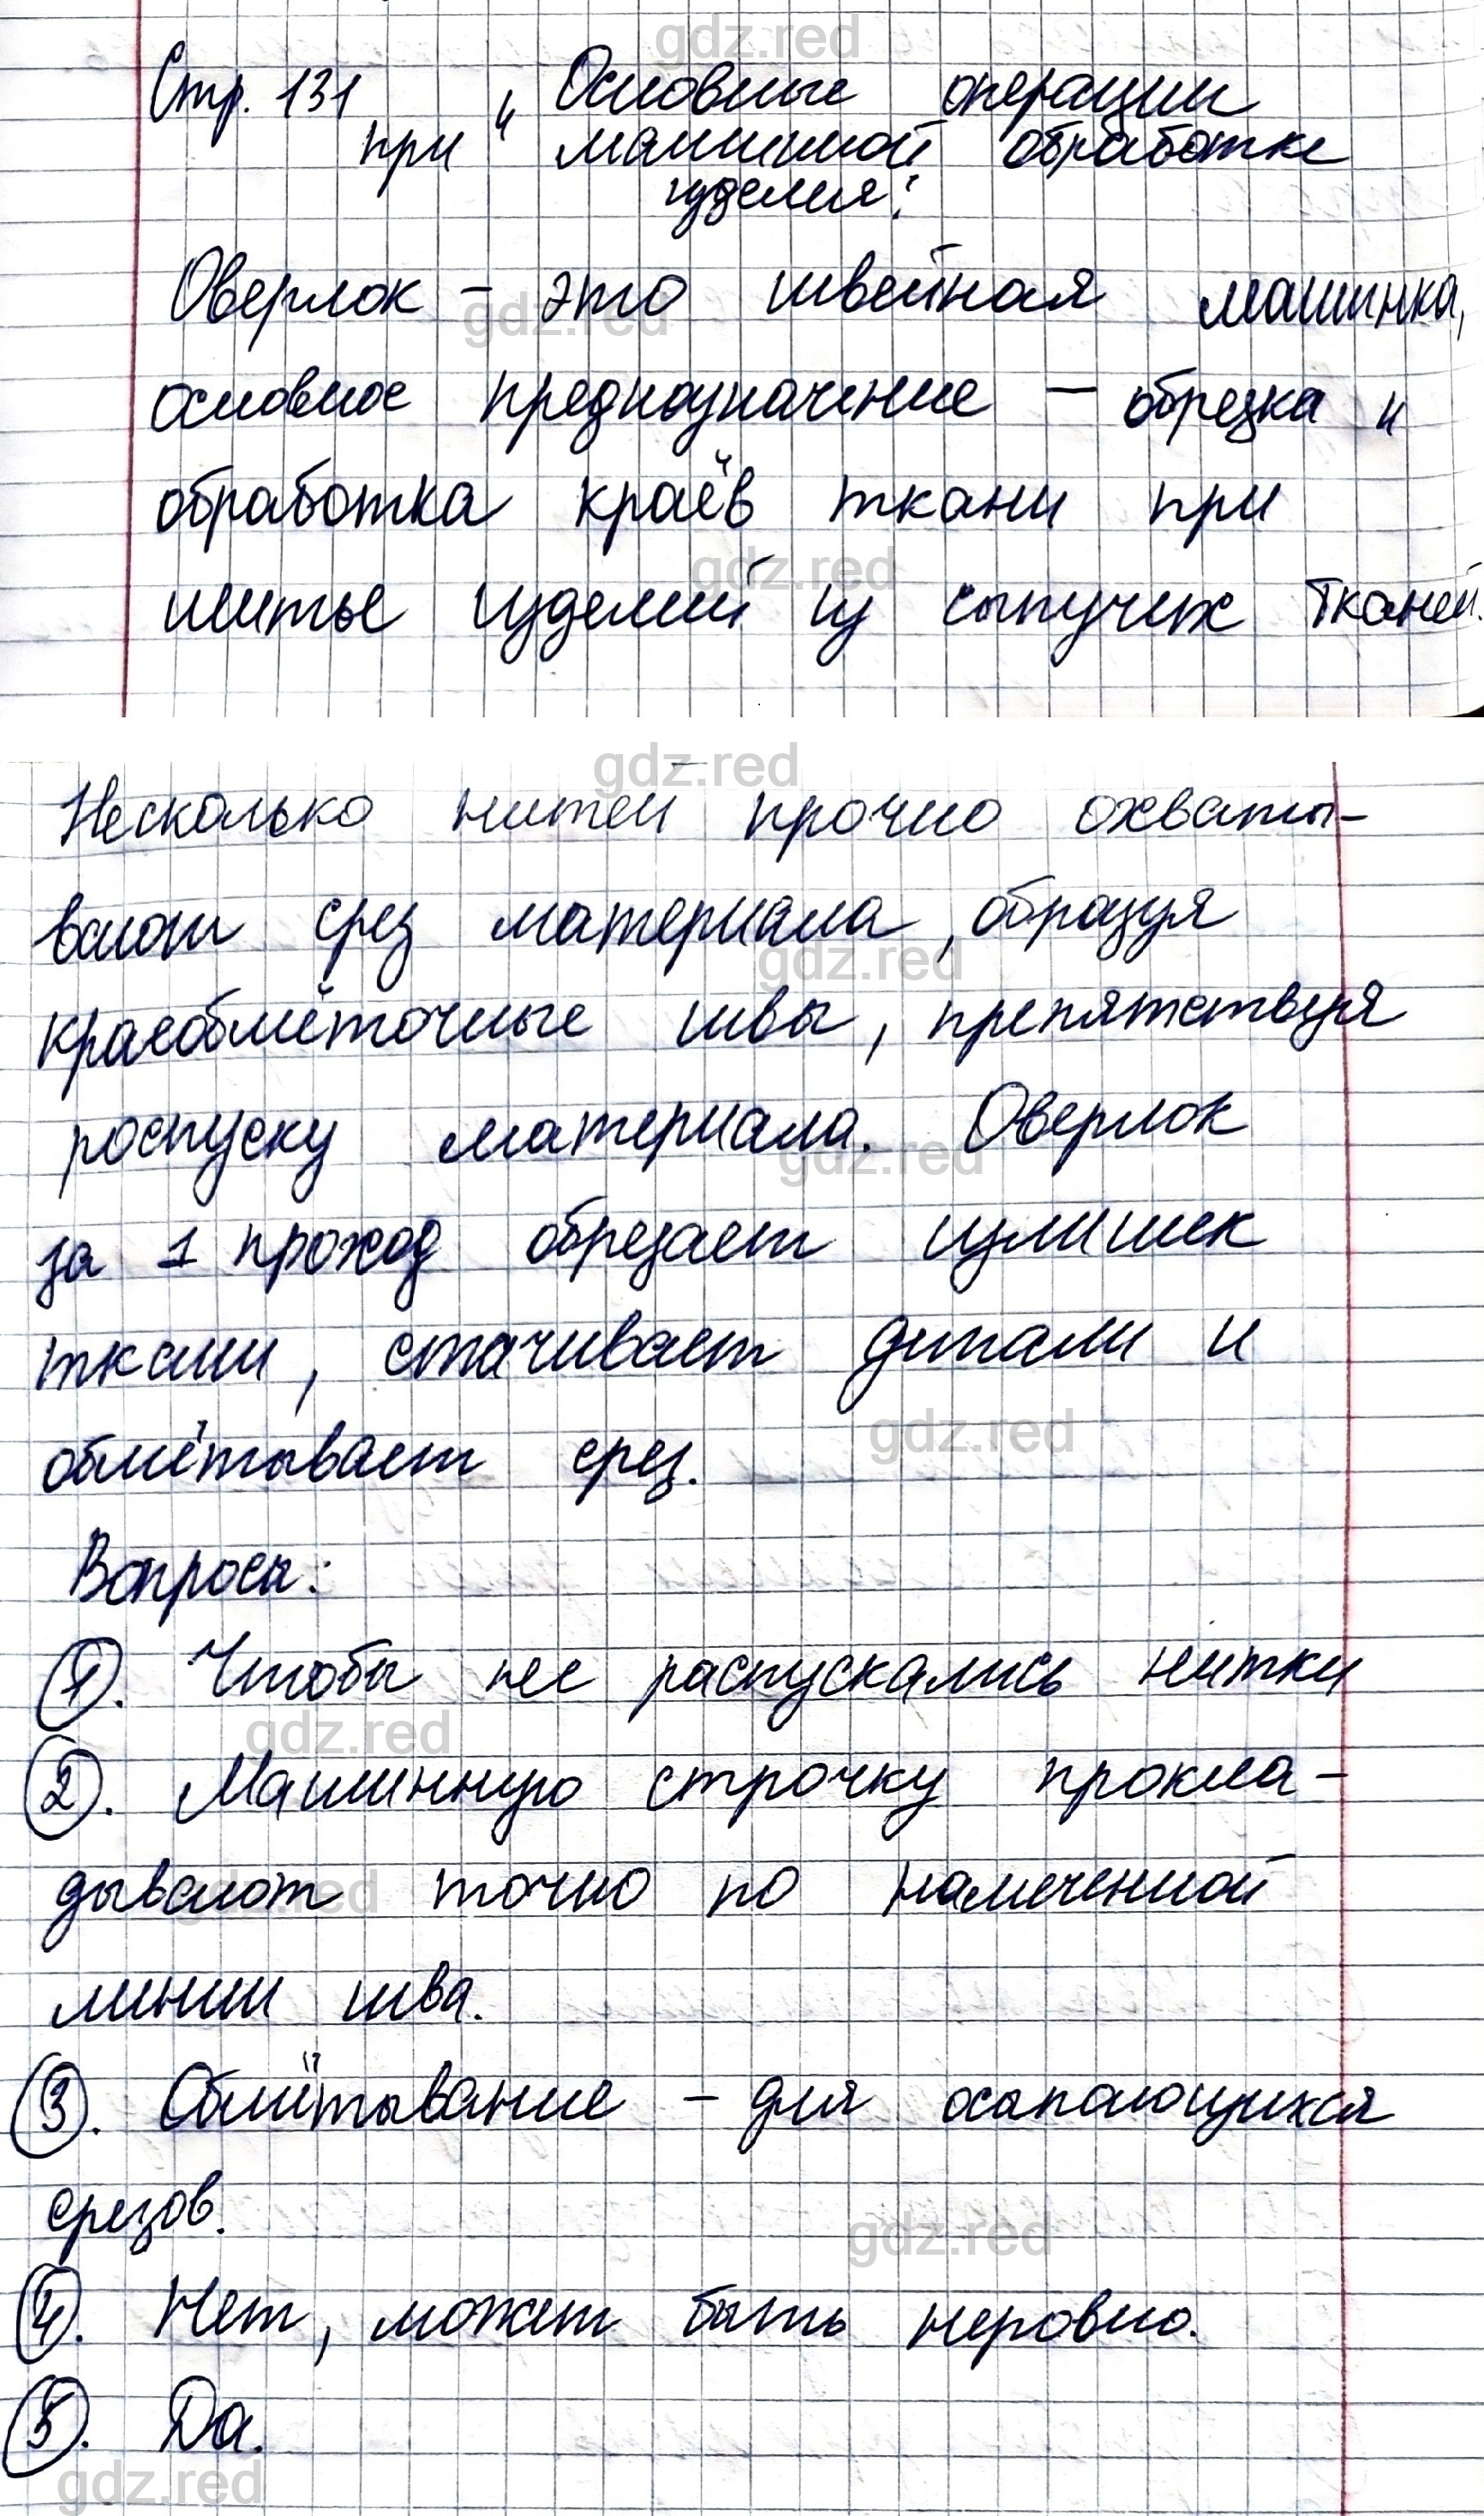 Стр. 131 „Основные операции
при машинной обработке
изделия".
Оверлок – это швейная машинка,
основное предназначение – обрезка и
обработка краёв ткани при
шитье изделий из сыпучих тканей.
Несколько нитей прочно охваты-
вают срез материала, образуя
краеобмёточные швы, препятствуя
роспуску материала. Оверлок
за 1 проход обрезает излишек
ткани, стачивает детали и
обмётывает срез.
Вопросы:
1. Чтобы не распускались нитки
2. Машинную строчку прокла-
дывают точно по намеченной
линии шва.
3. Обмётывание – для осыпающихся
срезов.
4. Нет, может быть неровно.
5. Да.
gdz.red